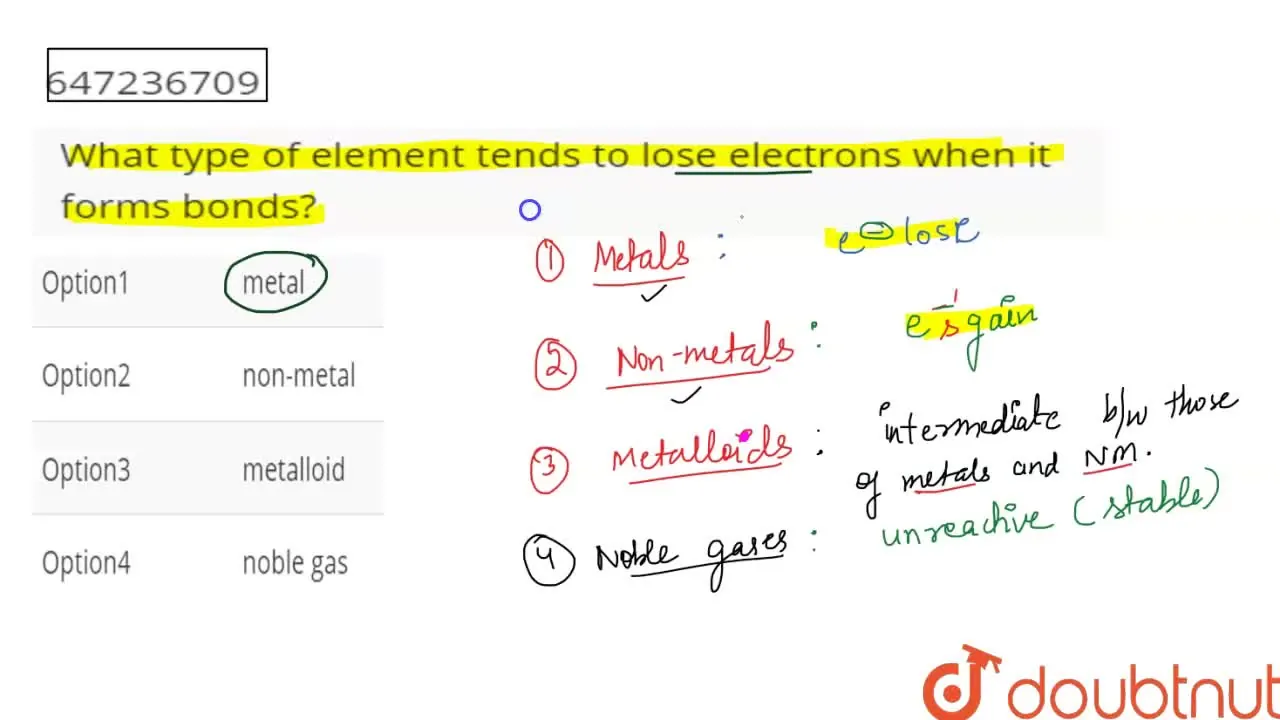 647236709
What type of element tends to lose electrons when it
forms bonds?
Option1 metal
Option2 non-metal
Option3 metalloid
Option4 noble gas
① Metals : e⊖ lose
② Non-metals : e⁻'s gain
③ Metalloids : intermediate b/w those
of metals and NM.
④ Noble gases : unreactive (stable)
doubtnut